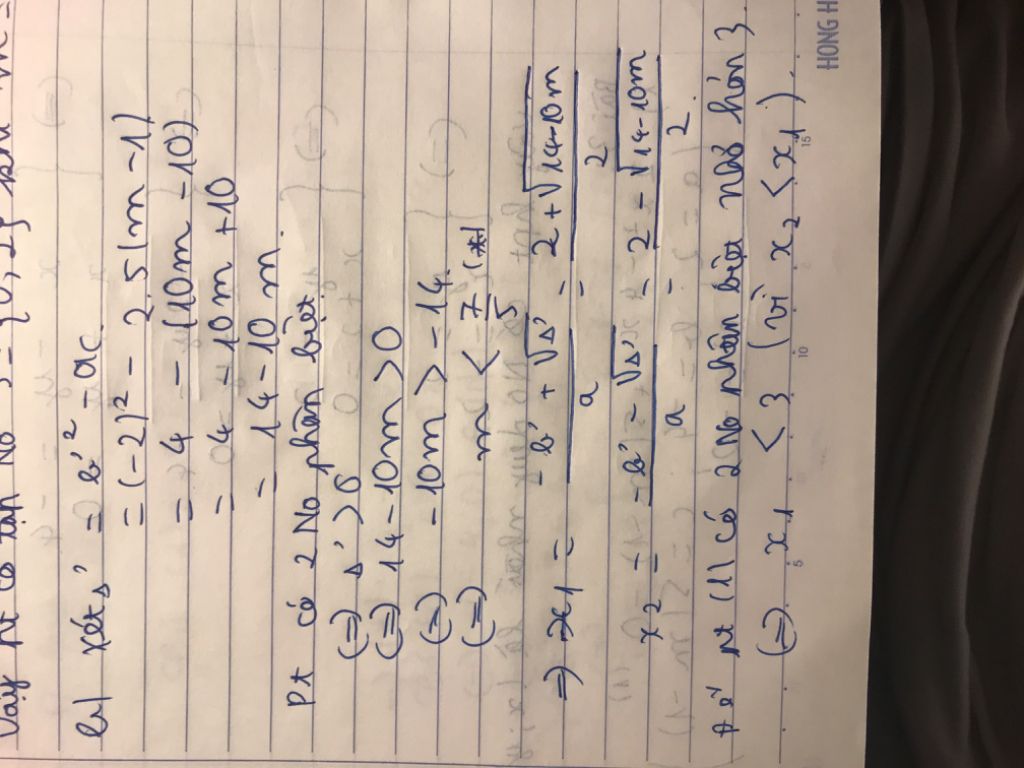 Vậy pt có tập No S = {0, 2} khi m =
b) xét Δ' = b'² - ac
= (-2)² - 2.5(m-1)
= 4 - (10m - 10)
= 4 - 10m + 10
= 14 - 10m.
Pt có 2 No phân biệt
(=) Δ' > 0
(=) 14 - 10m > 0
(=) -10m > -14
(=) m < 7/5 (**)
=> x₁ = (-b' + √Δ')/a = (2 + √(14-10m))/2
x₂ = (-b' - √Δ')/a = (2 - √(14-10m))/2
Để pt (1) có 2 No phân biệt nhỏ hơn 3.
(=) x₁ < 3 (vì x₂ < x₁).
5 10 15
HONG H